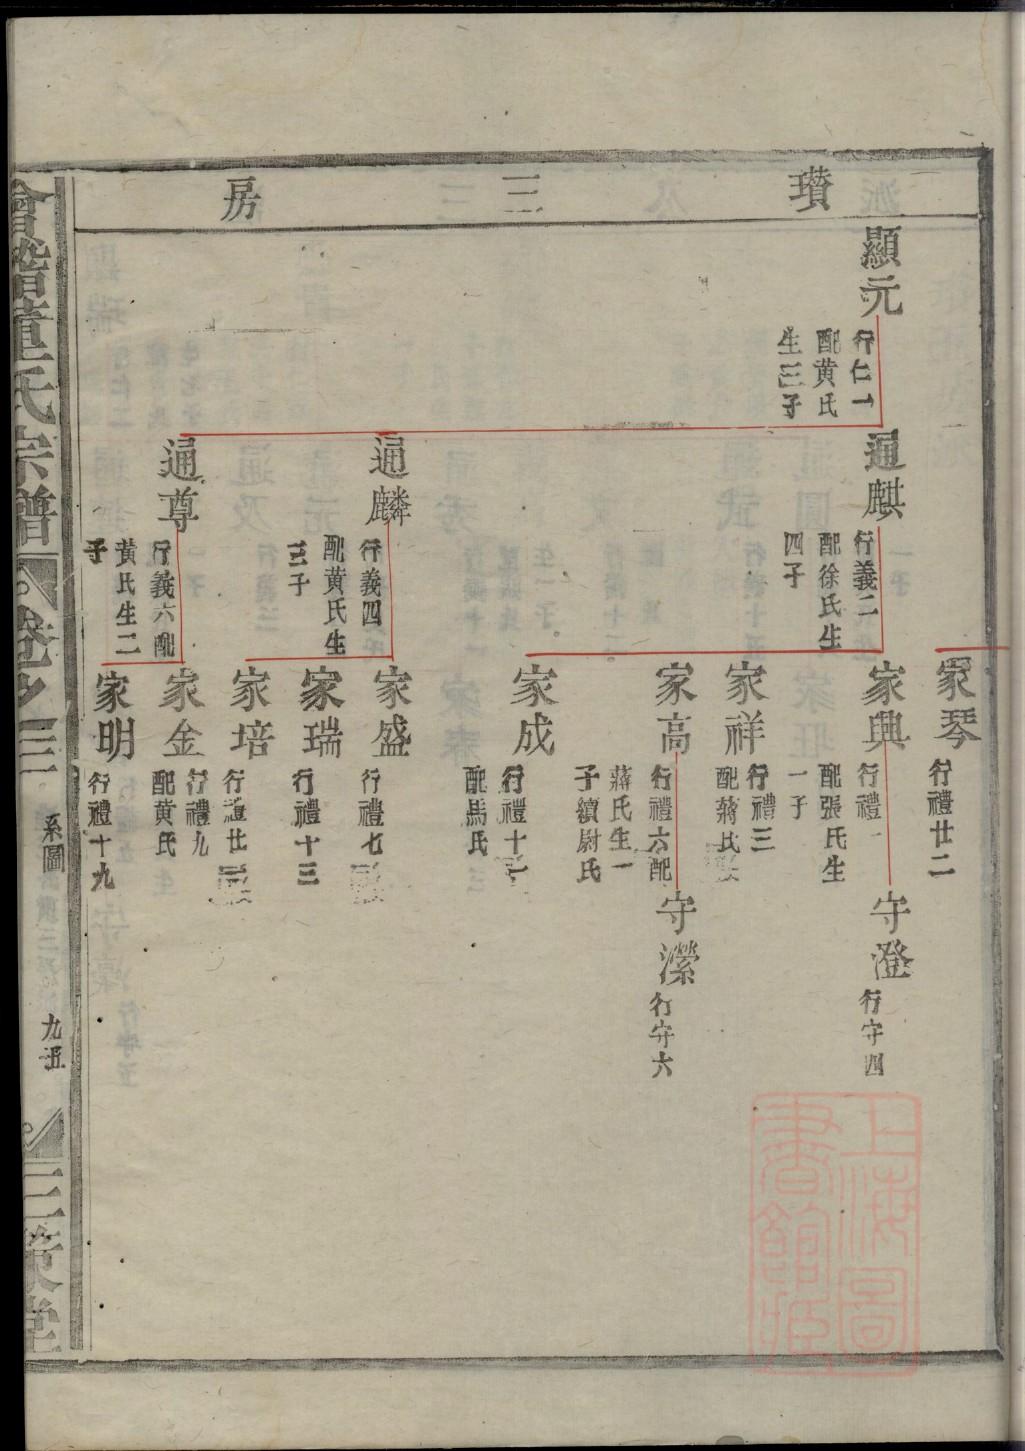 瓚三房
顯元
行仁一
配黄氏
生三子
通麒
行義二
配徐氏生
四子
通麟
行義四
配黄氏生
三子
通尊
行義六配
黄氏生二
子
家琴
行禮廿二
家興
行禮一
配張氏生
一子
家祥
行禮三
配蔣氏
家高
行禮六配
蔣氏生一
子續尉氏
家成
行禮十二
配馬氏
家盛
行禮七
家瑞
行禮十三
家培
行禮廿
家金
行禮九
配黄氏
家明
行禮十九
守澄
行守四
守瀠
行守六
會稽童氏宗譜
卷之三
系圖
九五
三策堂
上海圖
書館藏